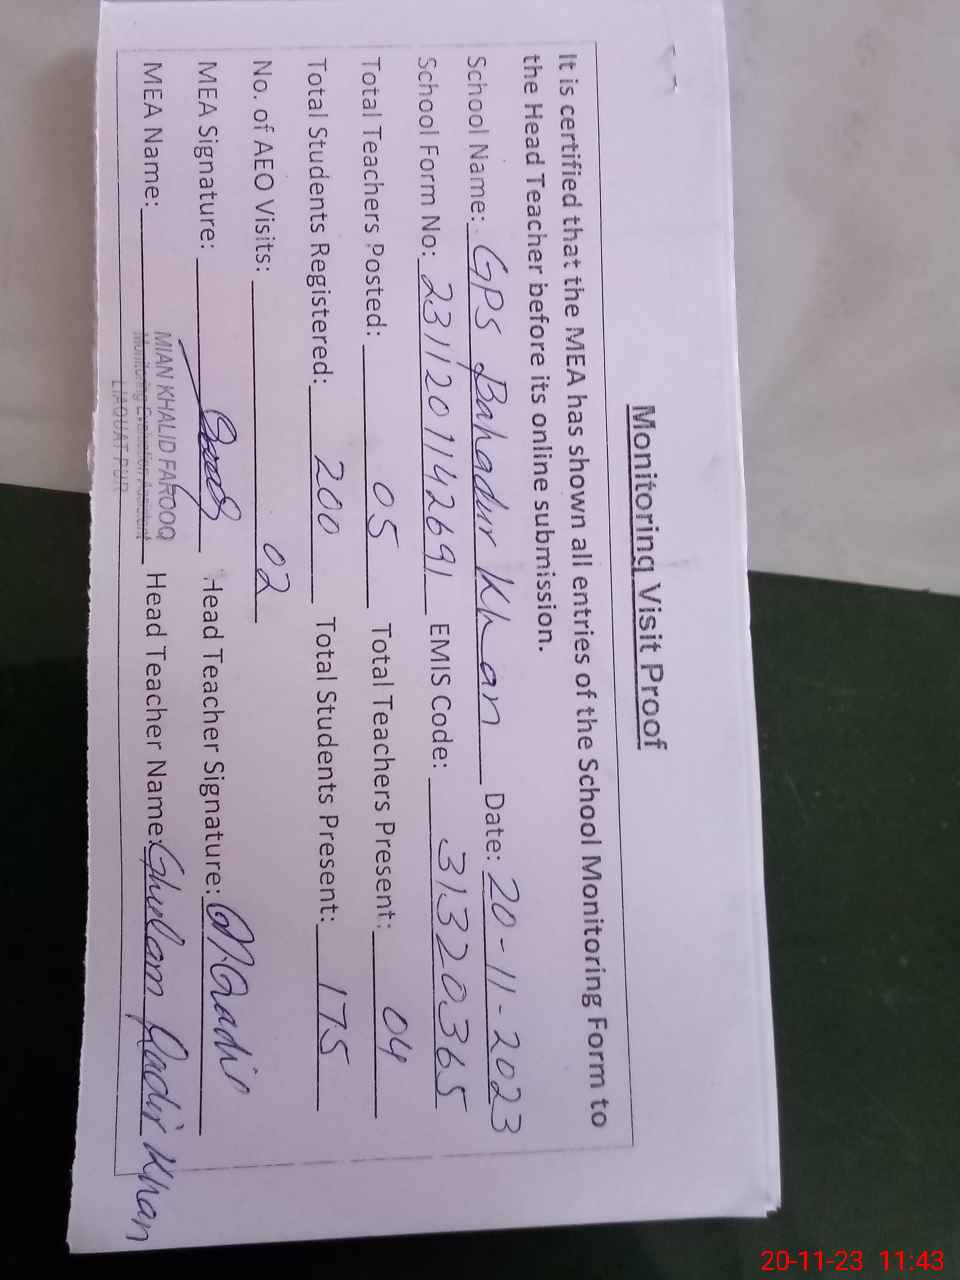 Monitoring Visit Proof
It is certified that the MEA has shown all entries of the School Monitoring Form to
the Head Teacher before its online submission.
School Name: GPS Bahadur Khan Date: 20-11-2023
School Form No: 2311201142691 EMIS Code: 31320365
Total Teachers Posted: 05 Total Teachers Present: 04
Total Students Registered: 200 Total Students Present: 175
No. of AEO Visits: 02
MEA Signature: Head Teacher Signature: G.Qadir
MEA Name: MIAN KHALID FAROOQ Head Teacher Name: Ghulam Qadir Khan
Monitoring Evaluation Assistant
LIAQUAT PUR
20-11-23 11:43